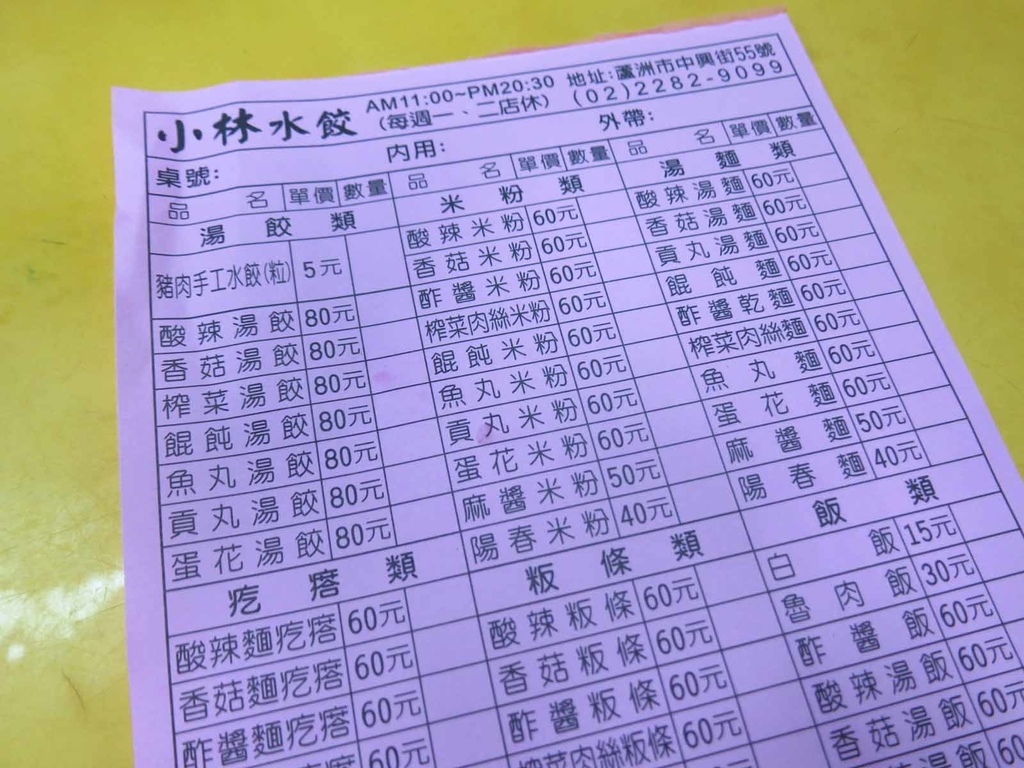 小林水餃
AM11:00~PM20:30
(每週一、二店休)
地址:蘆洲市中興街55號
(02)2282-9099
桌號: 內用: 外帶:
品名 單價 數量
湯餃類
豬肉手工水餃(粒) 5元
酸辣湯餃 80元
香菇湯餃 80元
榨菜湯餃 80元
餛飩湯餃 80元
魚丸湯餃 80元
貢丸湯餃 80元
蛋花湯餃 80元
疙瘩類
酸辣麵疙瘩 60元
香菇麵疙瘩 60元
酢醬麵疙瘩 60元
60元
品名 單價 數量
米粉類
酸辣米粉 60元
香菇米粉 60元
酢醬米粉 60元
榨菜肉絲米粉 60元
餛飩米粉 60元
魚丸米粉 60元
貢丸米粉 60元
蛋花米粉 60元
麻醬米粉 50元
陽春米粉 40元
粄條類
酸辣粄條 60元
香菇粄條 60元
酢醬粄條 60元
榨菜肉絲粄條 60元
品名 單價 數量
湯麵類
酸辣湯麵 60元
香菇湯麵 60元
貢丸湯麵 60元
餛飩麵 60元
酢醬乾麵 60元
榨菜肉絲麵 60元
魚丸麵 60元
蛋花麵 60元
麻醬麵 50元
陽春麵 40元
飯類
白飯 15元
魯肉飯 30元
酢醬飯 60元
酸辣湯飯 60元
香菇湯飯 60元
湯飯 60